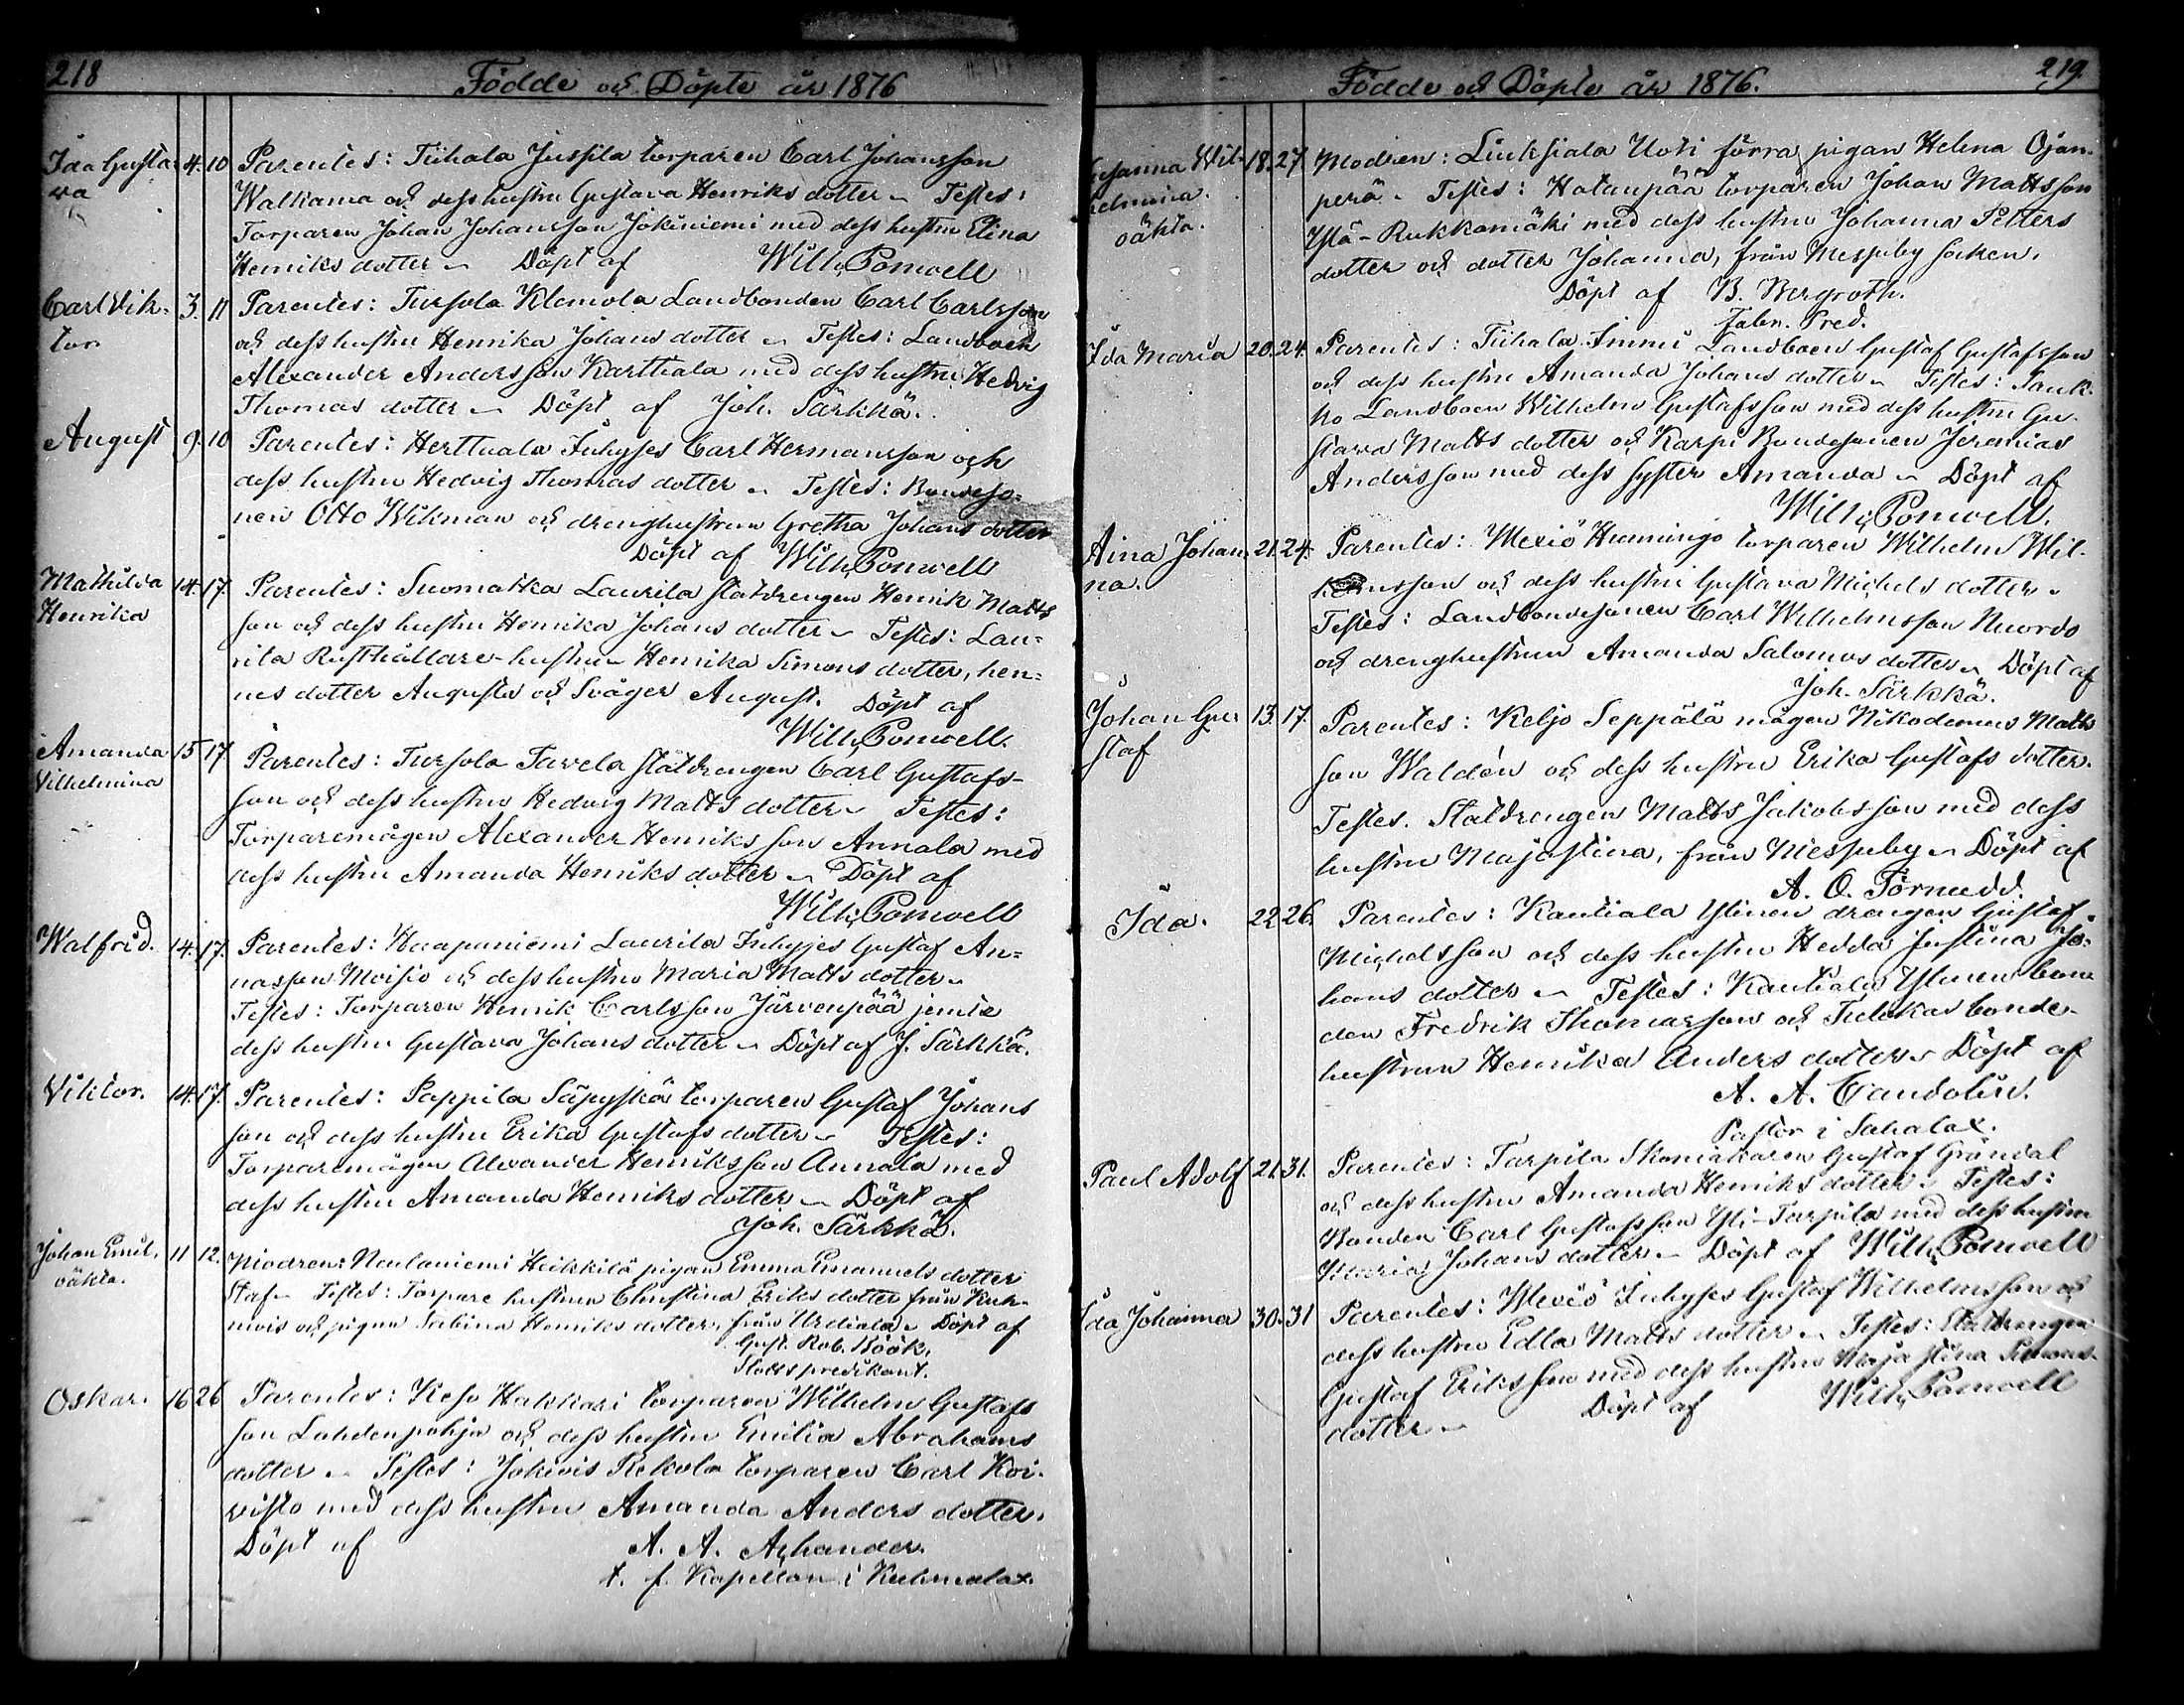 218
Födde och Döpte år 1876
Ida Gusta- 4. 10 Parentes: Tiihala Jussila torparen Carl Johansson
va Walkama och dess hustru Gustava Henriks dotter ~ Testes:
Torparen Johan Johansson Jokiniemi med dess hustru Elina
Henriks dotter ~ Döpt af Wilh. Ponwell
Carl Vik- 3. 11 Parentes: Tursola Klemola Landbonden Carl Carlsson
tor och dess hustru Henrika Johans dotter ~ Testes: Landboen
Alexander Andersson Karttiala med dess hustru Hedvig
Thomas dotter ~ Döpt af Joh. Särkkä.
August 9. 10 Parentes: Herttuala Inhyses Carl Hermansson och
dess hustru Hedvig Thomas dotter ~ Testes: Bondeso-
nen Otto Wikman och drenghustrun Gretha Johans dotter
Döpt af Wilh. Ponwell
Mathilda 14. 17. Parentes: Suomatka Laurila statdrengen Henrik Matts
Henrika son och dess hustru Henrika Johans dotter ~ Testes: Lau-
rila Rusthållare-hustrun Henrika Simons dotter, hen-
nes dotter Augusta och Svåger August. Döpt af
Wilh. Ponwell.
Amanda 15 17 Parentes: Tursola Tavela statdrengen Carl Gustafs-
Vilhelmina son och dess hustru Hedvig Matts dotter ~ Testes:
Torparemågen Alexander Henriksson Annala med
dess hustru Amanda Henriks dotter ~ Döpt af
Wilh. Ponwell
Walfrid. 14. 17. Parentes: Haapaniemi Laurila Inhyses Gustaf An-
nasson Moisio och dess hustru Maria Matts dotter ~
Testes: Torparen Henrik Carlsson Järvenpää jemte
dess hustru Gustava Johans dotter ~ Döpt af J. Särkkä.
Viktor. 14. 17. Parentes: Pappila Säpyskä torparen Gustaf Johans
son och dess hustru Erika Gustafs dotter ~ Testes:
Torparemågen Alexander Henriksson Annala med
dess hustru Amanda Henriks dotter ~ Döpt af
Joh. Särkkä.
Johan Emil. 11 12. Modren: Neulaniemi Heikkilä pigan Emma Emanuels dotter
oäkta. Staf ~ Testes: Torpare hustrun Christina Eriks dotter från Kuh-
mois och pigan Sabina Henriks dotter, från Urdiala ~ Döpt af
Gust. Rob. Böök,
Slottspredikant.
Oskar. 16 26 Parentes: Keso Hakkari torparen Wilhelm Gustafs
son Lahdenpohja och dess hustru Emilia Abrahams
dotter ~ Testes: Jokiois Rekola torparen Carl Koi-
visto med dess hustru Amanda Anders dotter.
Döpt af A. A. Arhander.
t. f. Kapellan i Kuhmalax.
219.
Födde och Döpte år 1876.
Susanna Wil- 18. 27 Modren: Liuksiala Uoti förra pigan Helena Ojan-
helmina. perä ~ Testes: Hatanpää torparen Johan Mattsson
oäkta. Ylä-Rukkamäki med dess hustru Johanna Petters
dotter och dotter Johanna, från Messuby socken.
Döpt af B. Bergroth.
Fabr. Pred.
Ida Maria 20. 24. Parentes: Tiihala Immi Landboen Gustaf Gustafsson
och dess hustru Amanda Johans dotter ~ Testes: Pauk-
ko Landboen Wilhelm Gustafsson med dess hustru Gu-
stava Matts dotter och Karpi Bondesonen Jeremias
Andersson med dess syster Amanda ~ Döpt af
Wilh. Ponwell.
Aina Johan- 21. 24. Parentes: Wexiö Humingo torparen Wilhelm Wil-
na. son och dess hustru Gustava Michels dotter ~
Testes: Landbondesonen Carl Wilhelmsson Nuordo
och drenghustrun Amanda Salomos dotter ~ Döpt af
Joh. Särkkä.
Johan Gu- 13. 17. Parentes: Keljo Seppälä mågen Nikodemus Matts
staf son Waldén och dess hustru Erika Gustafs dotter.
Testes. Statdrengen Matts Jakobsson med dess
hustru Majastina, från Messuby ~ Döpt af
A. O. Törnudd.
Ida. 22 26. Parentes: Kautiala Ylinen drengen Gustaf
Michelsson och dess hustru Hedda Justina Jo-
hans dotter ~ Testes: Kautiala Ylinen bon-
den Fredrik Thomasson och Tulokas bonde-
hustrun Henrika Anders dotter ~ Döpt af
A. A. Candolin.
Pastor i Sahalax.
Paul Adolf 21. 31. Parentes: Tarpila Skomakaren Gustaf Gröndal
och dess hustru Amanda Henriks dotter: Testes:
Bonden Carl Gustafsson Yli-Tarpila med dess hustru
Maria Johans dotter ~ Döpt af Wilh. Ponwell
Ida Johanna 30. 31 Parentes: Wexiö Inhyses Gustaf Wilhelmsson och
dess hustru Edla Matts dotter ~ Testes: Statdrengen
Gustaf Eriksson med dess hustru Maja stina Simons-
dotter ~ Döpt af Wilh. Ponwell